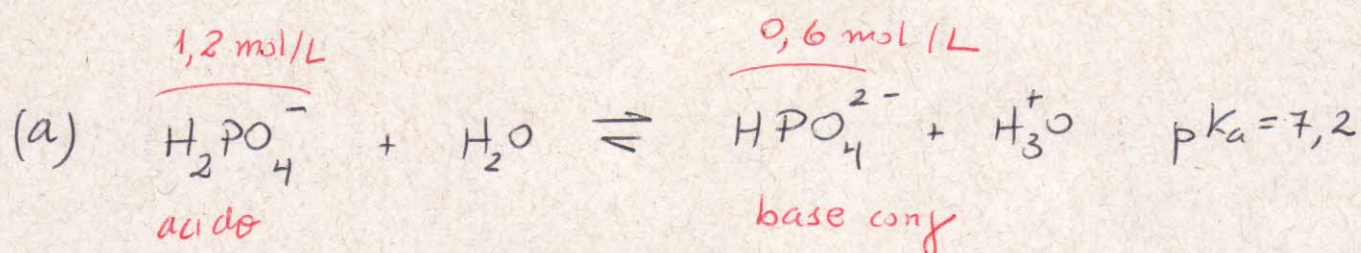 1,2 mol/L 0,6 mol/L
(a) H₂PO₄⁻ + H₂O ⇌ HPO₄²⁻ + H₃⁺O pKa = 7,2
acido base conj